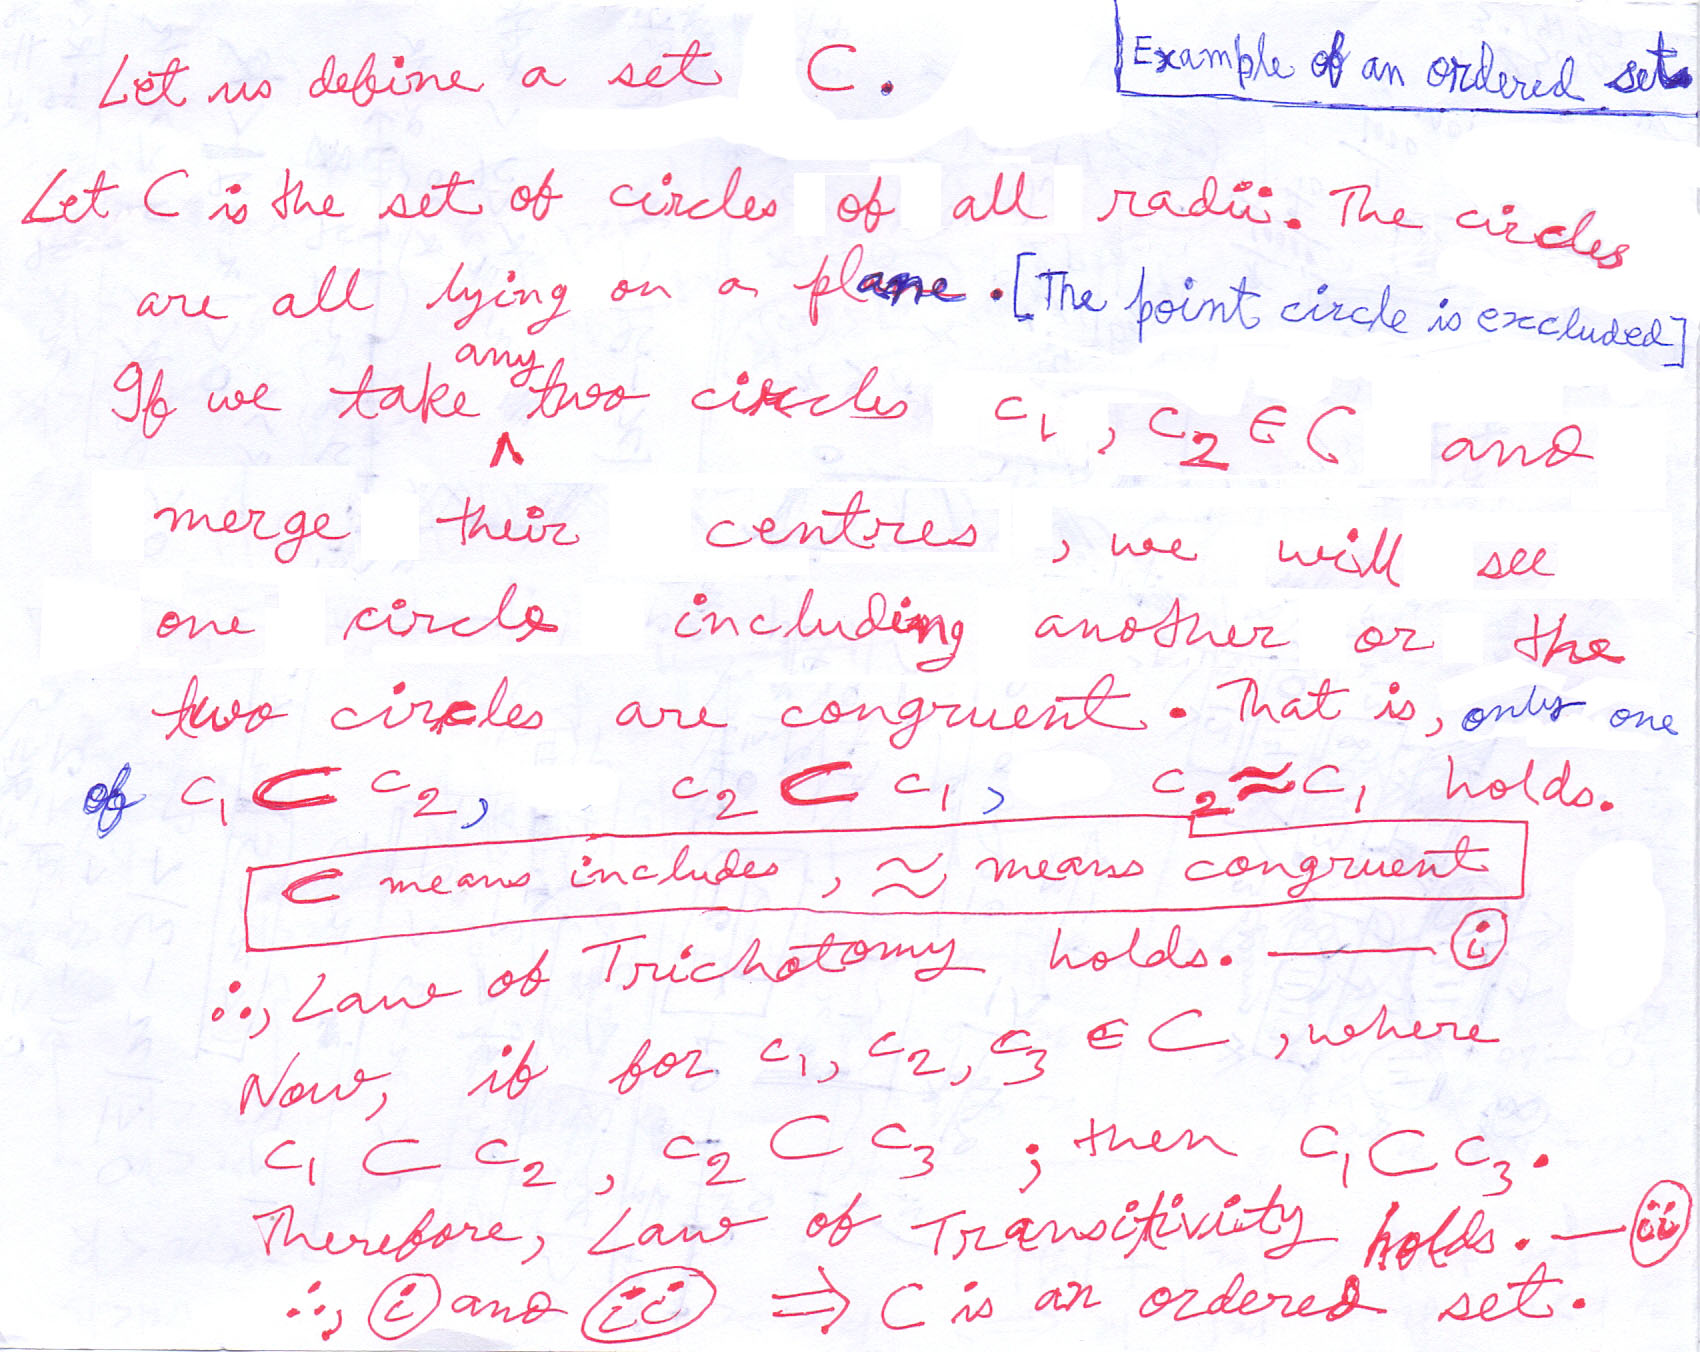 Example of an ordered set
Let us define a set C.
Let C is the set of circles of all radii. The circles
are all lying on a plane. [The point circle is excluded]
If we take any two circles c₁, c₂ ∈ C and
merge their centres, we will see
one circle including another or the
two circles are congruent. That is, only one
of c₁ ⊂ c₂, c₂ ⊂ c₁, c₂ ≈ c₁ holds.
⊂ means includes, ≈ means congruent
∴, Law of Trichotomy holds. — (i)
Now, if for c₁, c₂, c₃ ∈ C, where
c₁ ⊂ c₂, c₂ ⊂ c₃; then c₁ ⊂ c₃.
Therefore, Law of Transitivity holds. — (ii)
∴, (i) and (ii) ⇒ C is an ordered set.